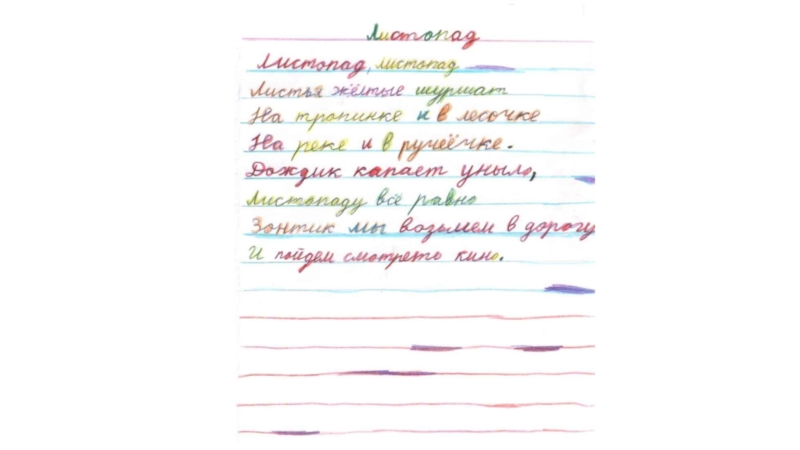 Листопад
Листопад, листопад
Листья жёлтые шуршат
На тропинке и в лесочке
На реке и в ручеёчке.
Дождик капает уныло,
Листопаду всё равно
Зонтик мы возьмем в дорогу
И пойдем смотреть кино.